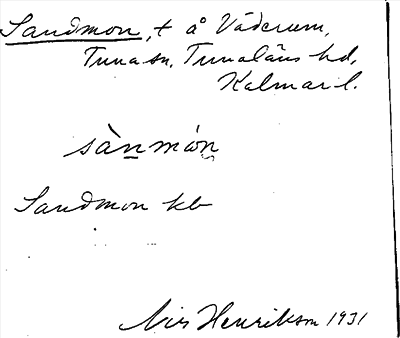 Sandmon, t å Väderum,
Tuna sn, Tunaläns hd,
Kalmar l.
sànmón
Sandmon kb
Nils Henrikson 1931